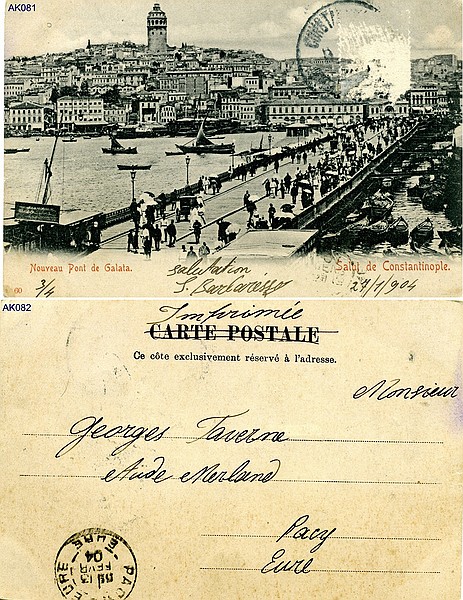 AK081
CONSTAN
Nouveau Pont de Galata.
Salut de Constantinople.
salutation
60
3/4
S. Barbaresso
21/1/904
AK082
Imprimée
CARTE POSTALE
Ce côte exclusivement réservé à l'adresse.
Monsieur
Georges Taverne
Aide Merland
Pacy
Eure
PACY
EURE
13
FEVR
04